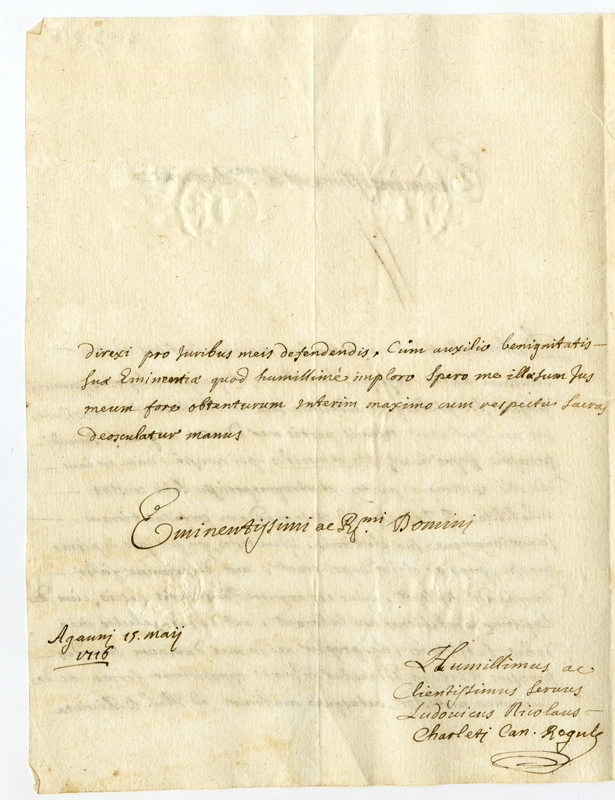 direxi pro Juribus meis defendendis, Cùm auxilio benignitatis
suæ Eminentiæ quod humillimè imploro Spero me illæsum Jus
meum fore obtenturum Interim maximo cum respectu Sacras
deosculatur manus
Eminentissimi ac Rmi Domini
Agauni 15. maij
1716
Humillimus ac
Clientissimus Servus
Ludovicus Nicolaus
Charleti Can. Regul